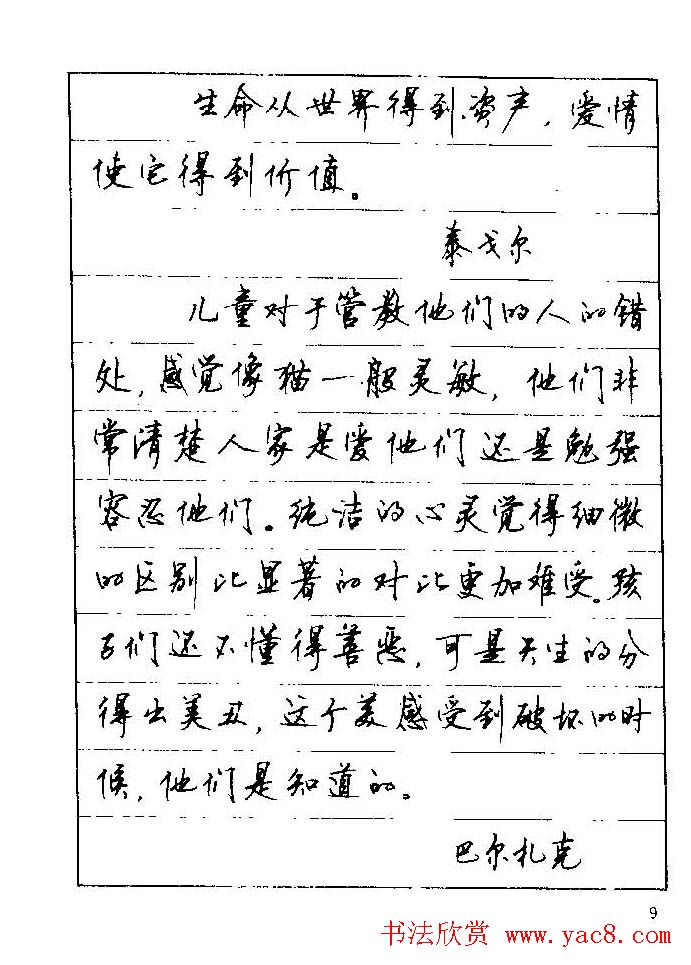 生命从世界得到资产，爱情
使它得到价值。
泰戈尔
儿童对于管教他们的人的错
处，感觉像猫一般灵敏，他们非
常清楚人家是爱他们还是勉强
容忍他们。纯洁的心灵觉得细微
的区别比显著的对比更加难受。孩
子们还不懂得善恶，可是天生的分
得出美丑，这个美感受到破坏的时
候，他们是知道的。
巴尔扎克
9
书法欣赏 www.yac8.com